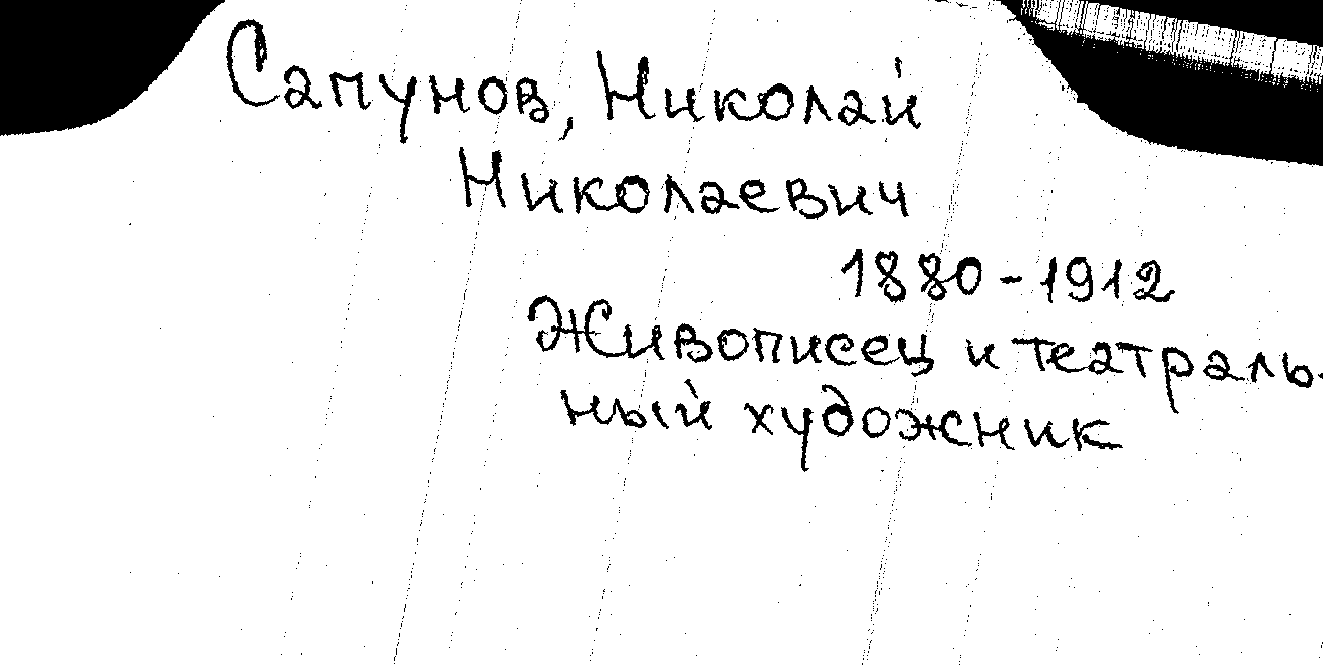 Сапунов, Николай
Николаевич
1880-1912
Живописец и театраль-
ный художник